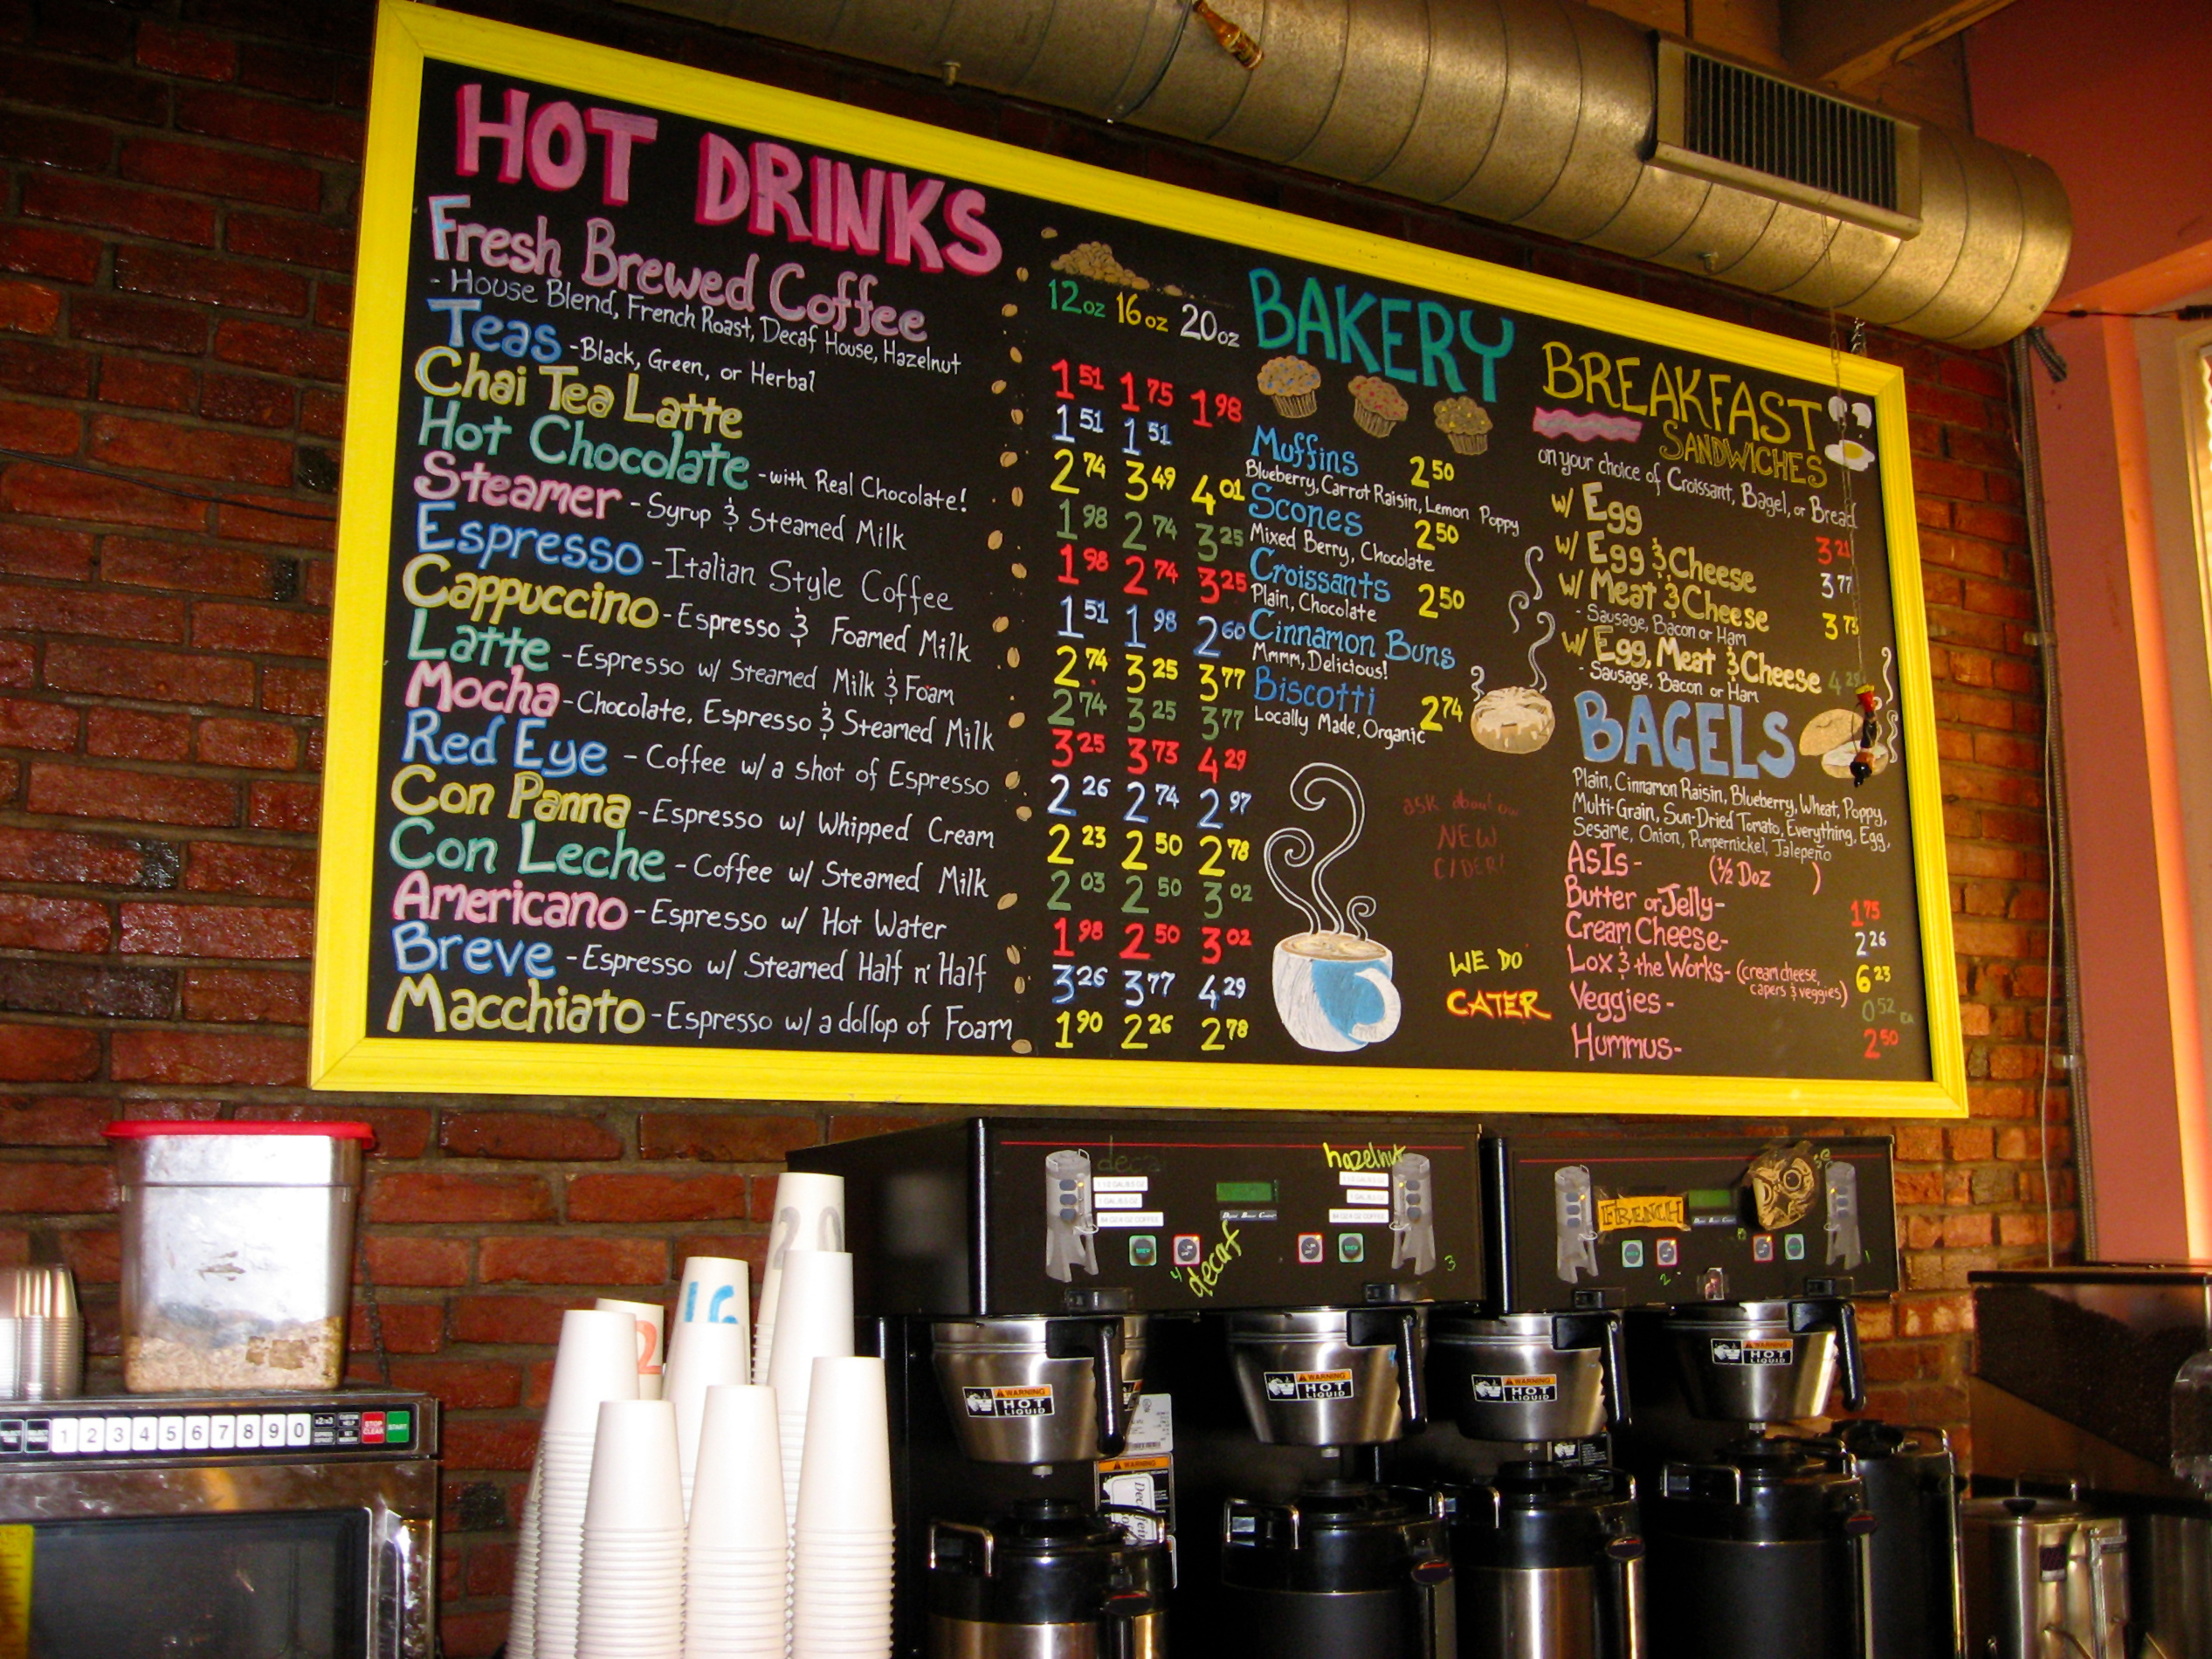 HOT DRINKS
12oz 16oz 20oz
Fresh Brewed Coffee 1 51 1 75 1 98
- House Blend, French Roast, Decaf House, Hazelnut
Teas - Black, Green, or Herbal 1 51 1 51
Chai Tea Latte 2 74 3 49 4 01
Hot Chocolate - with Real Chocolate! 1 98 2 74 3 25
Steamer - Syrup & Steamed Milk 1 98 2 74 3 25
Espresso - Italian Style Coffee 1 51 1 98 2 60
Cappuccino - Espresso & Foamed Milk 2 74 3 25 3 77
Latte - Espresso w/ Steamed Milk & Foam 2 74 3 25 3 77
Mocha - Chocolate, Espresso & Steamed Milk 3 25 3 73 4 29
Red Eye - Coffee w/ a shot of Espresso 2 26 2 74 2 97
Con Panna - Espresso w/ Whipped Cream 2 23 2 50 2 78
Con Leche - Coffee w/ Steamed Milk 2 03 2 50 3 02
Americano - Espresso w/ Hot Water 1 98 2 50 3 02
Breve - Espresso w/ Steamed Half n' Half 3 26 3 77 4 29
Macchiato - Espresso w/ a dollop of Foam 1 90 2 26 2 78
BAKERY
Muffins 2 50
Blueberry, Carrot Raisin, Lemon Poppy
Scones 2 50
Mixed Berry, Chocolate
Croissants 2 50
Plain, Chocolate
Cinnamon Buns
Mmmm, Delicious!
Biscotti 2 74
Locally Made, Organic
ask about our
NEW
CIDER!
WE DO
CATER
BREAKFAST
SANDWICHES
on your choice of Croissant, Bagel, or Bread
w/ Egg 3 21
w/ Egg & Cheese 3 77
w/ Meat & Cheese 3 73
- Sausage, Bacon or Ham
w/ Egg, Meat & Cheese
- Sausage, Bacon or Ham
BAGELS
Plain, Cinnamon Raisin, Blueberry, Wheat, Poppy,
Multi-Grain, Sun-Dried Tomato, Everything, Egg,
Sesame, Onion, Pumpernickel, Jalepeño
AsIs- (½ Doz )
Butter or Jelly- 1 75
Cream Cheese- 2 26
Lox & the Works- (cream cheese, 6 23
capers & veggies)
Veggies- 0 52 EA
Hummus- 2 50
decaf
hazelnut
decaf
4
3
FRENCH
2
1
20
16
2
1 2 3 4 5 6 7 8 9 0
STOP
CLEAR
START
WARNING
HOT
LIQUID
WARNING
HOT
LIQUID
WARNING
HOT
LIQUID
WARNING
HOT
LIQUID
WARNING